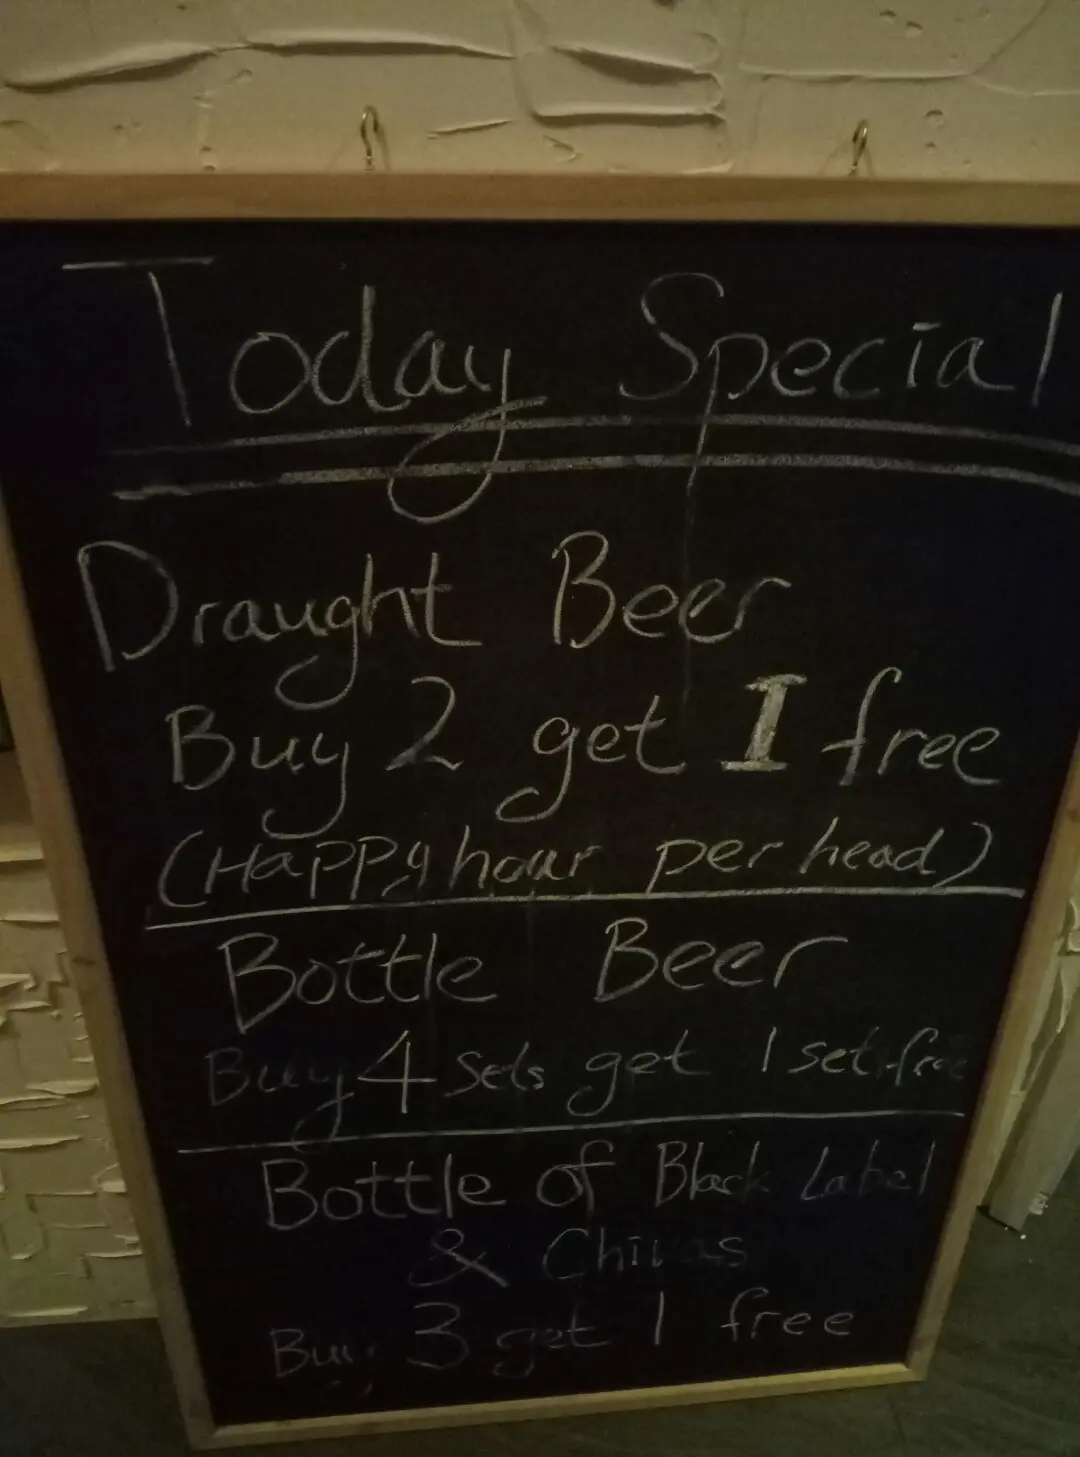 Today Special
Draught Beer
Buy 2 get 1 free
(Happy hour per head)
Bottle Beer
Buy 4 Sets get 1 set free
Bottle of Black Label
& Chivas
Buy 3 get 1 free